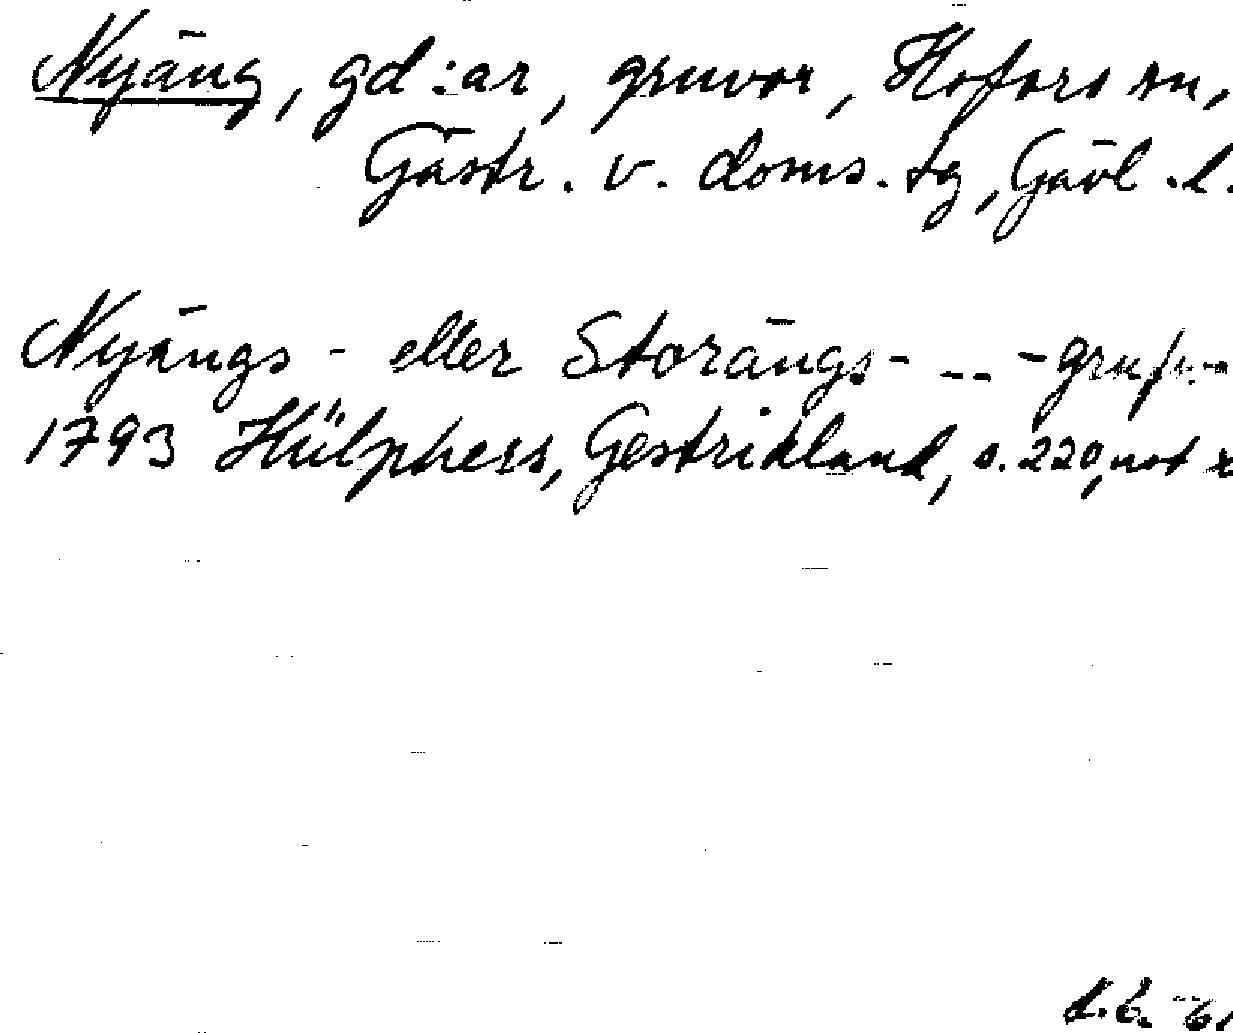 Nyäng, gd:ar, gruvor, Hofors sn,
Gästr. v. doms. tg, Gävl. l.
Nyängs- eller Storängs- -- -gruf
1793 Hülphers, Gestrikland, s. 220, not x